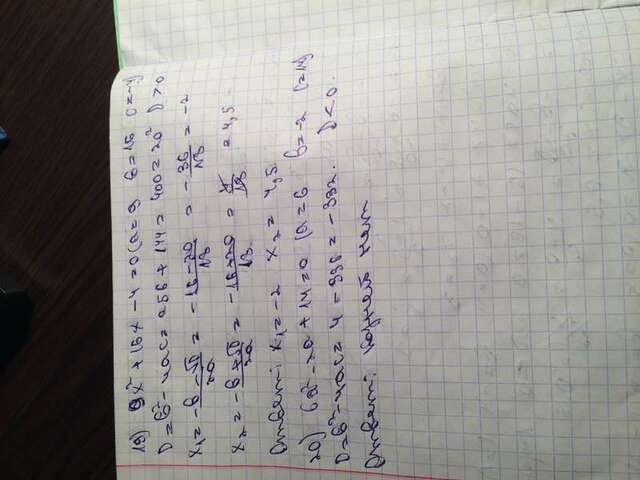 19) 9x² + 16x - 4 = 0 (a = 9 b = 16 c = -4)
D = b² - 4ac = 256 + 144 = 400 = 20² D > 0
x₁ = (-b - √D)/2a = (-16 - 20)/18 = -36/18 = -2
x₂ = (-b + √D)/2a = (-16 + 20)/18 = 4/18 = 4,5
Ответ: x₁ = -2 x₂ = 4,5
20) 6a² - 2a + 14 = 0 (a = 6 b = -2 c = 14)
D = b² - 4ac = 4 - 336 = -332. D < 0.
Ответ: корней нет